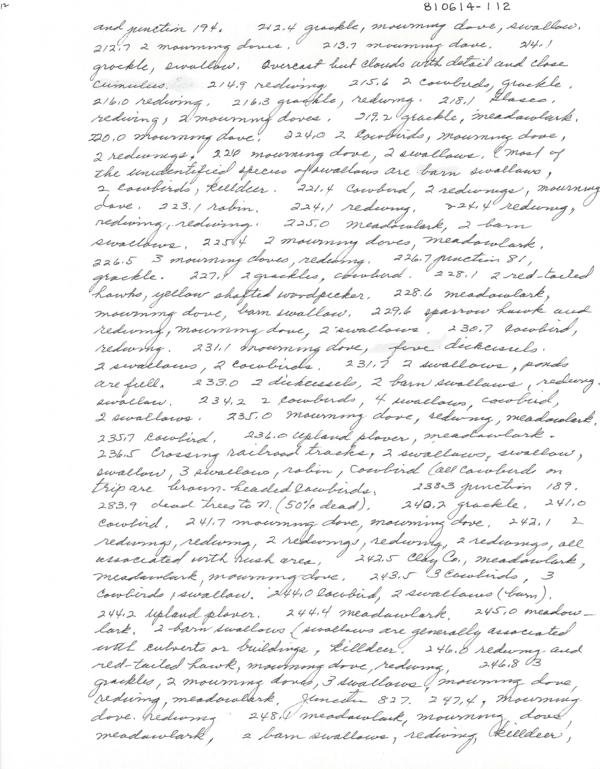 12
810614-112
and junction 194. 212.4 grackle, mourning dove, swallow.
212.7 2 mourning doves. 213.7 mourning dove. 214.1
grackle, swallow. Overcast but clouds with detail and close
cumulus. 214.9 redwing 215.6 2 cowbirds, grackle.
216.0 redwing. 216.3 grackle, redwing. 218.1
redwing, 2 mourning doves. 219.2 grackle, meadowlark.
220.0 mourning dove. 224.0 2 cowbirds, mourning dove,
2 redwings. 220 mourning dove, 2 swallows. (most of
the unidentified species of swallows are barn swallows,
2 cowbirds, killdeer. 221.4 cowbird, 2 redwings, mourning
dove. 223.1 robin. 224.1 redwing. 224.4 redwing,
redwing, redwing. 225.0 meadowlark, 2 barn
swallows. 225.4 2 mourning doves, meadowlark.
226.5 3 mourning doves, redwing. 226.7 junction 81,
grackle. 227.1 2 grackles, cowbird. 228.1 2 red-tailed
hawks, yellow shafted woodpicker. 228.6 meadowlark,
mourning dove, barn swallow. 229.6 sparrow hawk and
redwing, mourning dove, 2 swallows. 230.7 cowbird,
redwing. 231.1 mourning dove, five dickcissels.
2 swallows, 2 cowbirds. 231.7 2 swallows, ponds
are full. 233.0 2 dickcissels, 2 barn swallows, redwing
swallow. 234.2 2 cowbirds, 4 swallows, cowbird,
2 swallows. 235.0 mourning dove, redwing, meadowlark.
235.7 cowbird. 236.0 upland plover, meadowlark.
236.5 Crossing railroad tracks, 2 swallows, swallow,
swallow, 3 swallows, robin, cowbird (all cowbird on
trip are brown-headed cowbirds. 238.3 junction 189.
283.9 dead trees to N. (50% dead). 240.2 grackle. 241.0
cowbird. 241.7 mourning dove, mourning dove. 242.1 2
redwings, redwing, 2 redwings, redwing, 2 redwings, all
associated with rush area. 242.5 Clay Co., meadowlark,
meadowlark, mourning dove. 243.5 3 cowbirds, 3
cowbirds, swallow. 244.0 cowbird, 2 swallows (barn).
244.2 upland plover. 244.4 meadowlark. 245.0 meadow-
lark. 2 barn swallows (swallows are generally associated
with culverts or buildings, killdeer. 246.0 redwing and
red-tailed hawk, mourning dove, redwing, 246.8 3
grackles, 2 mourning doves, 3 swallows, mourning dove,
redwing, meadowlark. Junction 827. 247.4, mourning
dove. redwing 248.1 meadowlark, mourning dove,
meadowlark, 2 barn swallows, redwing, killdeer,